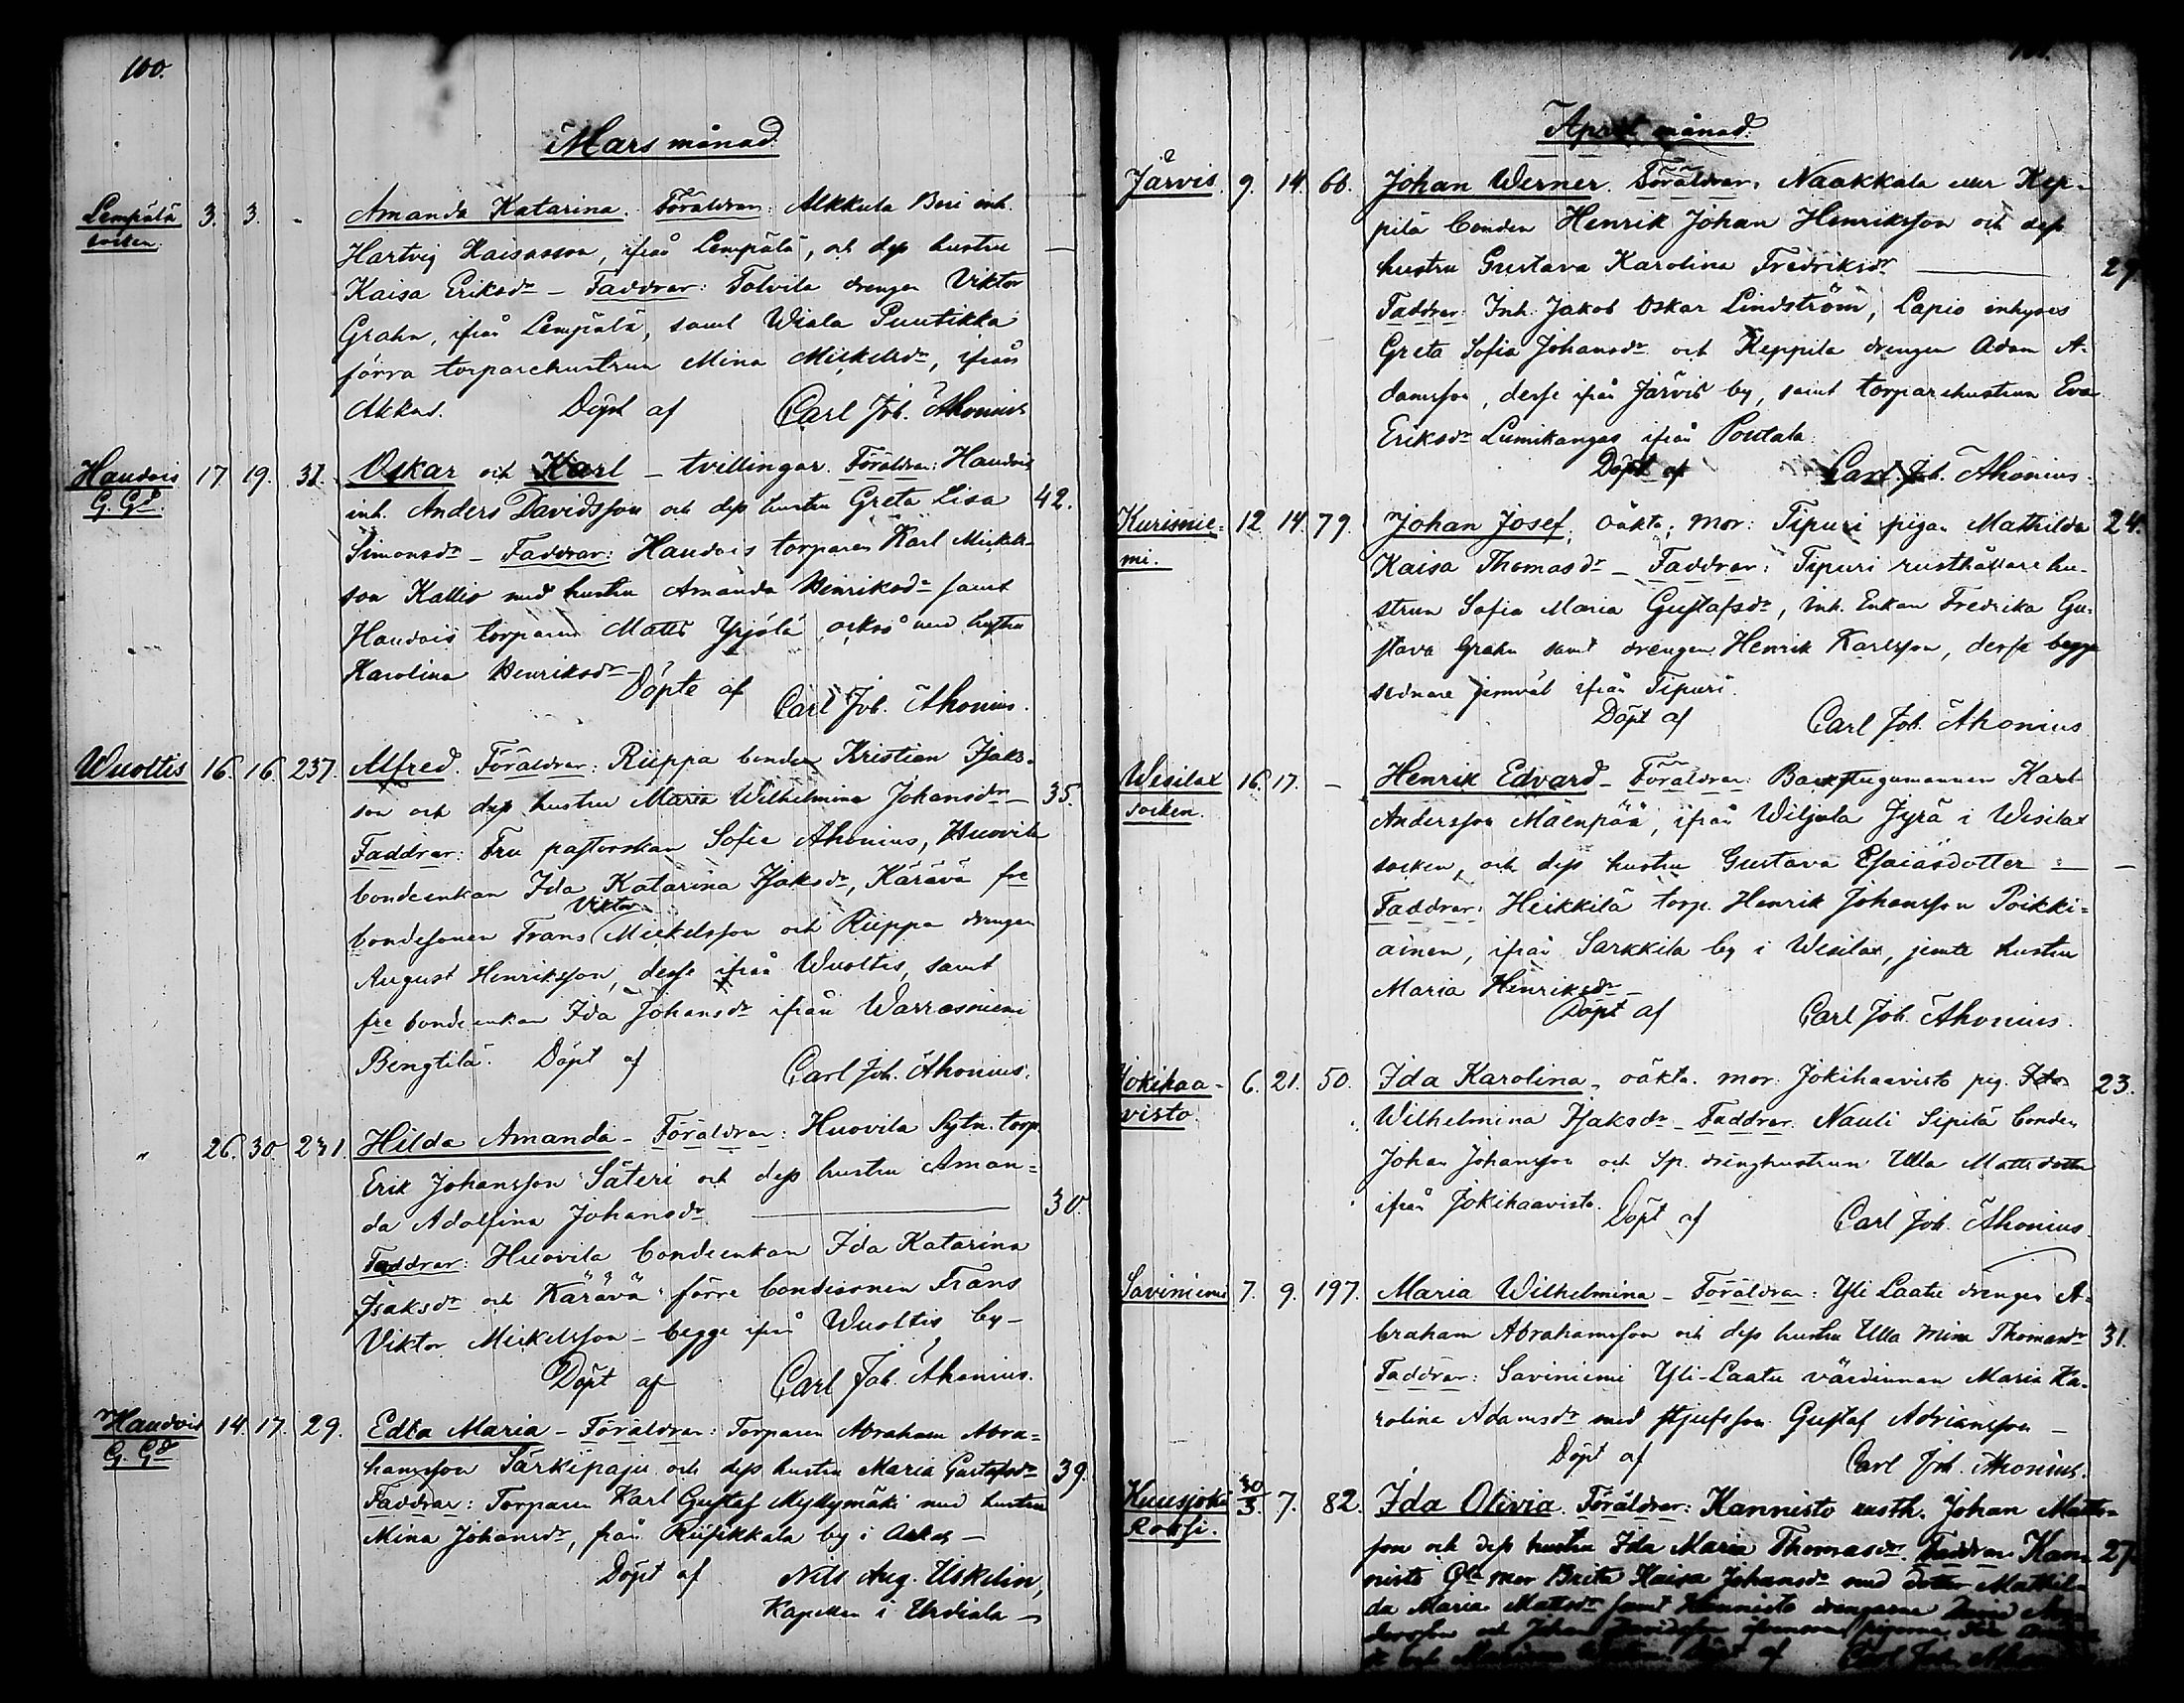 100.
Mars månad.
Lempälä 3. 3. - Amanda Katarina. Föräldrar: Alkkula Beri inh.
socken. Hartvig Kaisasson, ifrån Lempälä, och dess hustru —
Kaisa Eriksdr – Faddrar: Tolvila drengen Viktor
Grahn, ifrån Lempälä, samt Wiala Puutikka
förra torparehustrun Mina Mickelsdr, ifrån
Akkas. Döpt af Carl Joh. Ahonius
Haudois 17 19. 31. Oskar och Karl – tvillingar. Föräldrar: Haudois
G. Gd. inh. Anders Davidsson och dess hustru Greta Lisa 42.
Simonsdr – Faddrar: Haudois torparen Karl Mickels-
son Kallio med hustru Amanda Henriksdr samt
Haudois torparen Matts Yrjölä också med hustru
Karolina Henriksdr –
Döpte af Carl Joh. Ahonius.
Wuoltis 16. 16. 237. Alfred. Föräldrar: Rieppa bonden Kristian Isaks-
son och dess hustru Maria Wilhelmina Johansdr – 35.
Faddrar: Fru pastorskan Sofie Ahonius, Huovila
bondeenkan Ida Katarina Isaksdr, Kärävä fre
Viktor
bondesonen Frans Mickelsson och Rieppa drengen
August Henriksson, desse ifrån Wuoltis, samt
fre bondeenkan Ida Johansdr ifrån Warrasniemi
Bengtilä. Döpt af Carl Joh. Ahonius.
" 26. 30. 231. Hilda Amanda – Föräldrar: Huovila Sytn. torp.
Erik Johansson Säteri och dess hustru Aman-
da Adolfina Johansdr. — 30.
Faddrar: Huovila bondeenkan Ida Katarina
Isaksdr och Kärävä förre bondesonen Frans
Viktor Mickelsson – begge ifrån Wuoltis by –
Döpt af Carl Joh. Ahonius.
Haudois 14. 17. 29. Edla Maria – Föräldrar: Torparen Abraham Abra-
G. Gd hamsson Särkipaju och dess hustru Maria Gustafsdr 39.
Faddrar: Torparen Karl Gustaf Myllymäki med hustru
Mina Johansdr, från Riisikkala by i Akas –
Döpt af Nils Aug. Uskelin,
Kapellan i Urdiala –
April månad.
Järvis. 9. 14. 66. Johan Werner. Föräldrar: Naakkala eller Kep-
pilä bonden Henrik Johan Henriksson och dess
hustru Gustava Karolina Fredriksdr — 29.
Faddrar: Inh. Jakob Oskar Lindström, Lapio inhyses
Greta Sofia Johansdr och Keppila drengen Adam A-
damsson, desse ifrån Järvis by, samt torparehustrun Eva
Eriksdr Lumikangas ifrån Poutala.
Döpt af Carl Joh. Ahonius.
Kurisnie- 12. 14. 79. Johan Josef, oäkta; mor: Tipuri pigan Mathilda 24.
mi. Kaisa Thomasdr – Faddrar: Tipuri rusthållarehu-
strun Sofia Maria Gustafsdr, inh. Enkan Fredrika Gu-
stava Grahn samt drengen Henrik Karlsson, desse begge
sednare jemväl ifrån Tipuri.
Döpt af Carl Joh. Ahonius
Wesilax 16. 17. – Henrik Edvard – Föräldrar: Backstugumannen Karl
socken. Andersson Mäenpää, ifrån Wiljala Jyrä i Wesilax
socken, och dess hustru Gustava Esaiasdotter — –
Faddrar: Heikkilä torp. Henrik Johansson Poikki-
ainen, ifrån Sarkkila by i Wesilax, jemte hustru
Maria Henriksdr –
Döpt af Carl Joh. Ahonius.
Jokihaa- 6. 21. 50. Ida Karolina, oäkta. mor: Jokihaavisto pig. Ida 23.
visto. Wilhelmina Isaksdr – Faddrar: Nauli Sipilä bonden
Johan Johansson och Sp. drenghustrun Ulla Mattsdotter
ifrån Jokihaavisto. Döpt af Carl Joh. Ahonius.
Saviniemi 7. 9. 197. Maria Wilhelmina – Föräldrar: Yli Laatu drengen A-
braham Abrahamsson och dess hustru Ulla Mina Thomasdr 31.
Faddrar: Saviniemi Yli-Laatu värdinnan Maria Ka-
rolina Adamsdr med stjufsson Gustaf Adriansson –
Döpt af Carl Joh. Ahonius.
Huusjoki 30/3. 7. 82. Ida Olivia. Föräldrar: Kannisto rusth. Johan Matts-
Rohsi. son och dess hustru Ida Maria Thomasdr. Faddrar: Kan- 27.
nisto Gla mor Brita Kaisa Johansdr med dotter Mathil-
da Maria Mattsdr samt Kannisto drengarne
och Johan Davidsson pigorna Ida
och Döpt af Carl Joh.